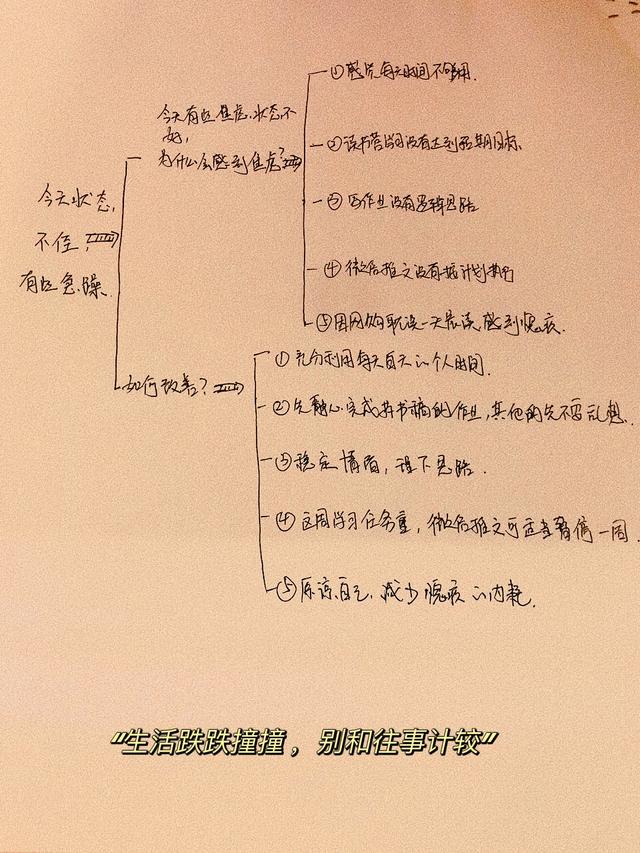 今天状态
不佳，
有些急躁
今天有些焦虑，状态不
好，
为什么会感到焦虑？
①感觉每天时间不够用.
②读书营学习没有达到预期目标.
③写作业没有逻辑思路
④微信推文没有按计划执行
⑤因网购耽误一天晨读，感到愧疚.
如何改善？
①充分利用每天白天的个人时间.
②先耐心完成拆书稿的作业，其他的先不要乱想.
③稳定情绪，理下思路.
④这周学习任务重，微信推文可适当暂停一周.
⑤原谅自己，减少愧疚的内耗.
“生活跌跌撞撞，别和往事计较”